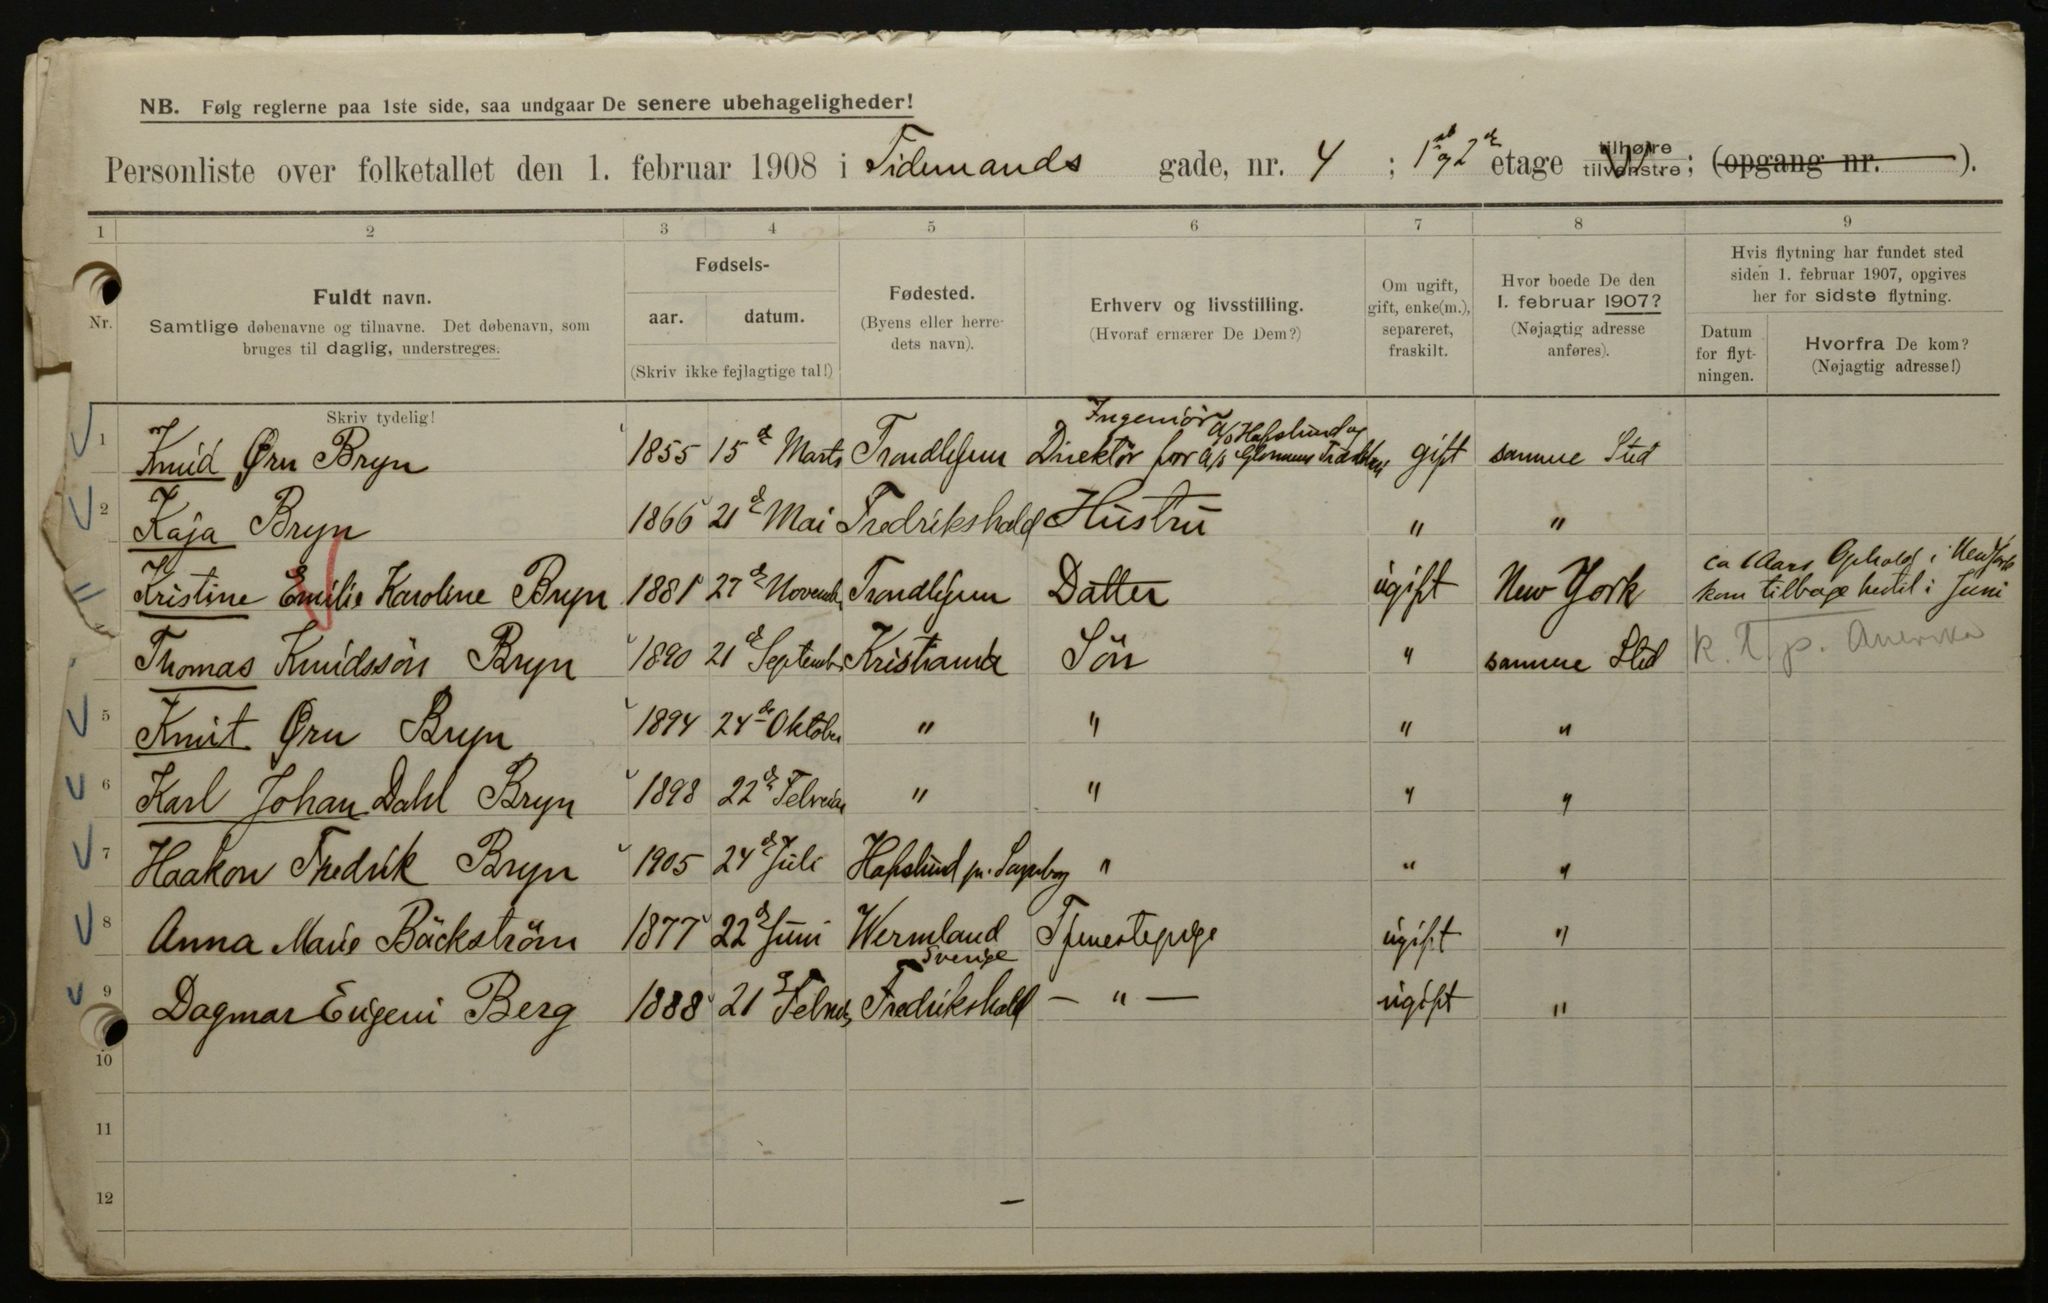 NB. Følg reglerne paa 1ste side, saa undgaar De senere ubehageligheder!
Personliste over folketallet den 1. februar 1908 i Tidemands gade, nr. 4 ; 1ste og 2den etage tilhøire tilvenstre ; (opgang nr. ).
1 2 3 4 5 6 7 8 9
Nr.
Fuldt navn.
Samtlige døbenavne og tilnavne. Det døbenavn, som
bruges til daglig, understreges.
Skriv tydelig!
Fødsels-
aar. datum.
(Skriv ikke fejlagtige tal!)
Fødested.
(Byens eller herre-
dets navn).
Erhverv og livsstilling.
(Hvoraf ernærer De Dem?)
Om ugift,
gift, enke(m.),
separeret,
fraskilt.
Hvor boede De den
1. februar 1907?
(Nøjagtig adresse
anføres).
Hvis flytning har fundet sted
siden 1. februar 1907, opgives
her for sidste flytning.
Datum
for flyt-
ningen.
Hvorfra De kom?
(Nøjagtig adresse!)
Ingeniör A/S Hafslund og
1 Knud Ørn Bryn 1855 15de Marts Trondhjem Direktör for A/S Glommens Træsliberi gift samme Sted
2 Kaja Bryn 1866 21de Mai Fredrikshald Hustru " "
ca 1 Aars Ophold i New York
Kristine Emilie Karoline Bryn 1881 27de Novemb. Trondhjem Datter ugift New York kom tilbage hertil i Juni
Thomas Knudssön Bryn 1890 21de Septemb. Kristiania Sön " samme Sted k. T. p. Amerika
5 Knut Ørn Bryn 1894 24de Oktober " " " "
6 Karl Johan Dahl Bryn 1898 22de Februar " " " "
7 Haakon Fredrik Bryn 1905 24de Juli Hafslund pr. Sarpsborg " " "
8 Anna Marie Bäckström 1877 22de Juni Wermland Sverige Tjenestepige ugift "
9 Dagmar Eugeni Berg 1888 21de Febr. Fredrikshald — " — ugift "
10
11
12